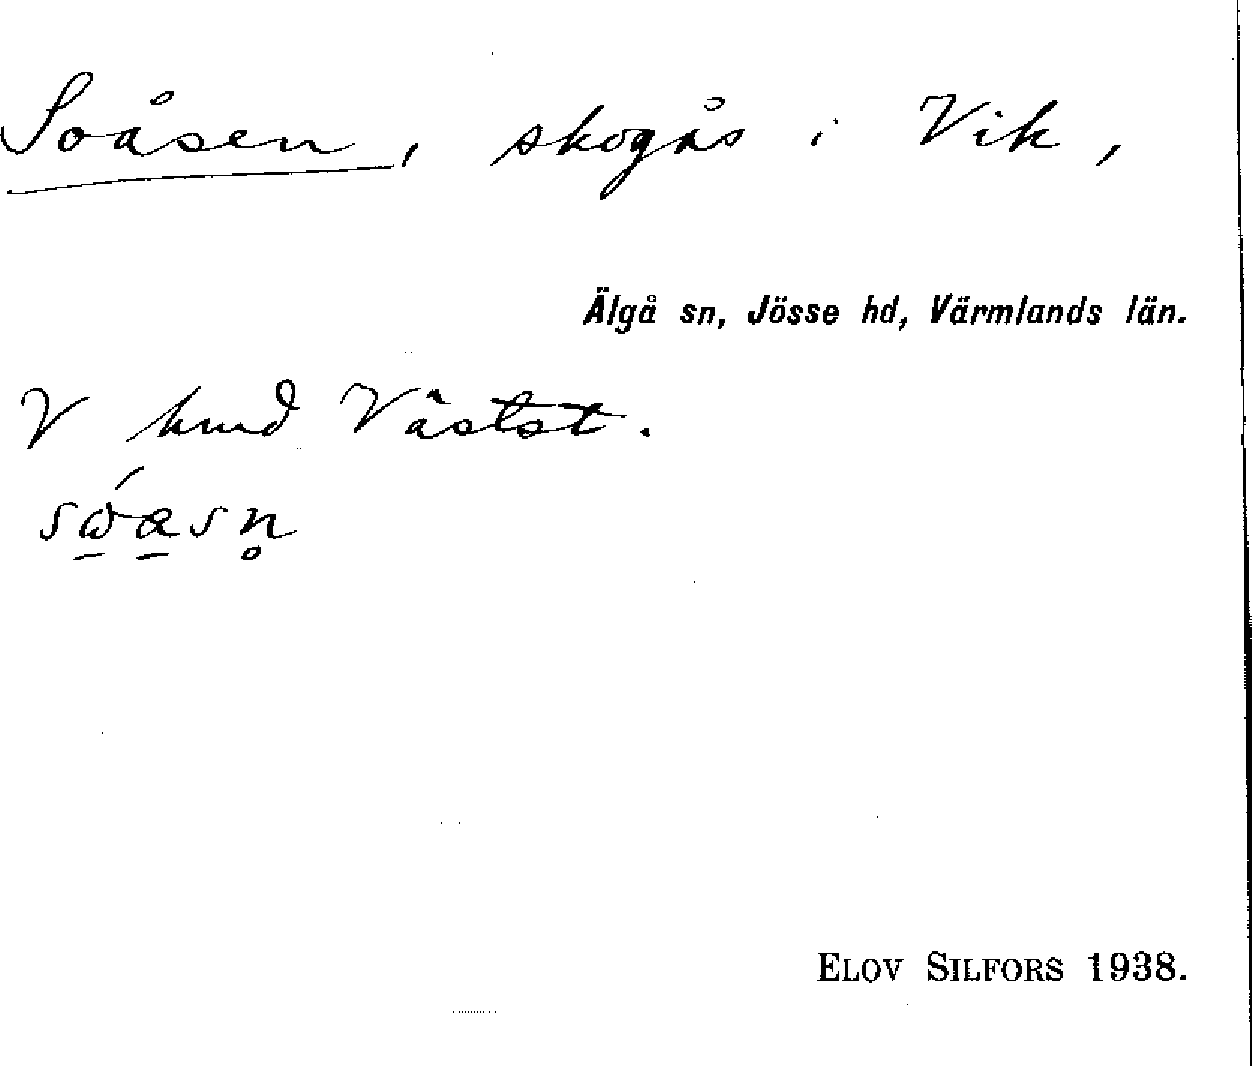 Soåsen, skogås i Vik,
Älgå sn, Jösse hd, Värmlands län.
V Västst.
ELOV SILFORS 1938.